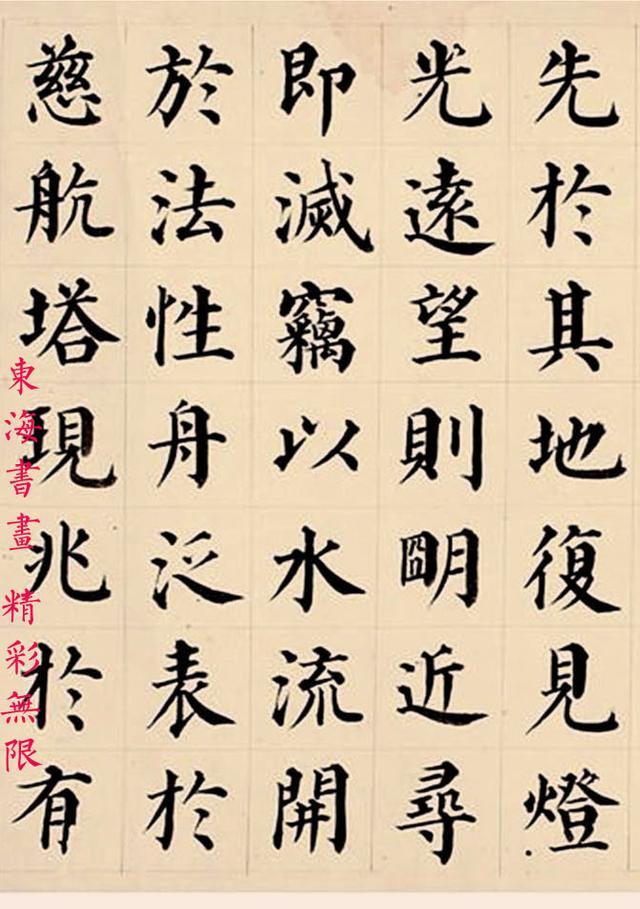 先於其地復見燈
光遠望則朙近尋
即滅竊以水流開
於法性舟泛表於
慈航塔現兆於有
東海書畫 精彩無限